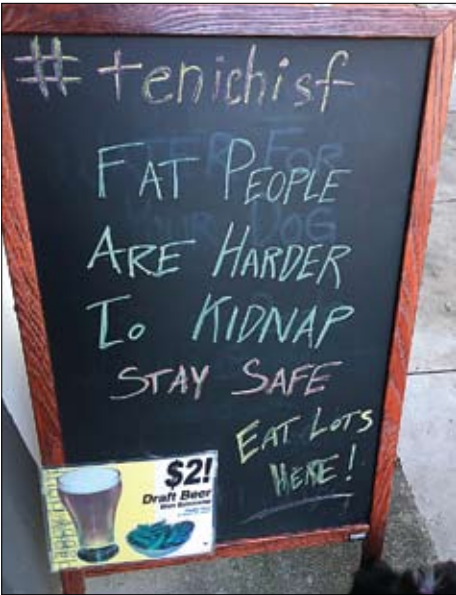 #tenichisf
FAT PEOPLE
ARE HARDER
TO KIDNAP
STAY SAFE
EAT LOTS
HERE!
$2!
Draft Beer
HAPPY HOUR